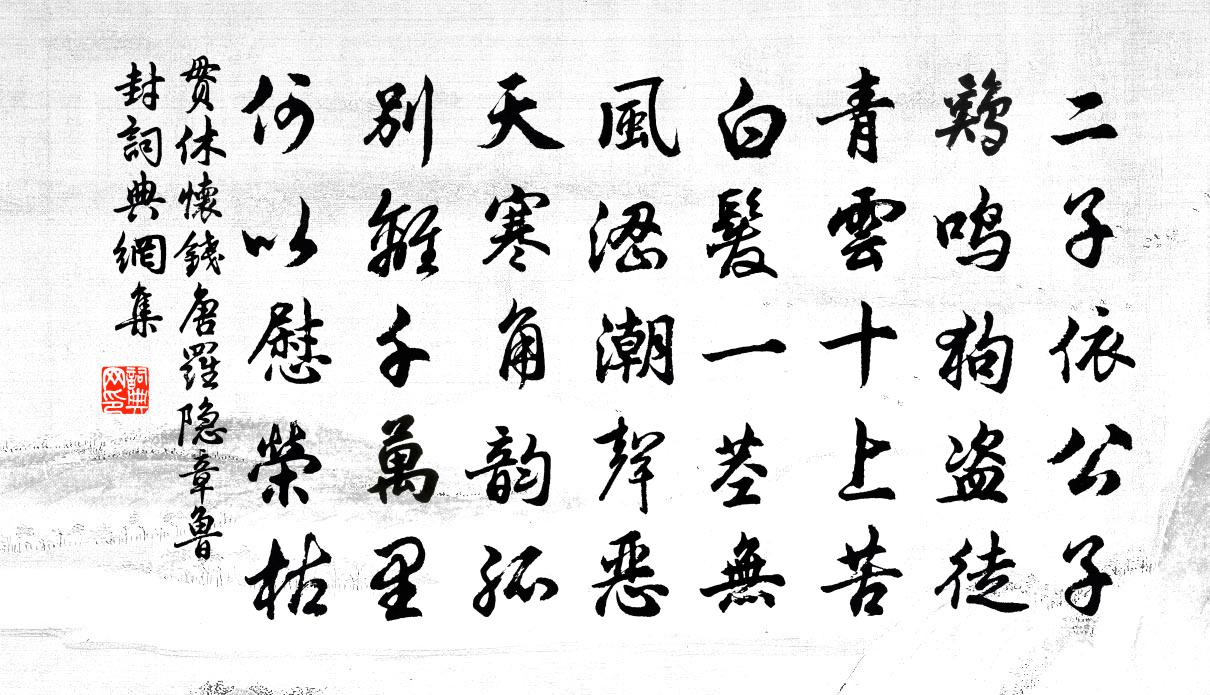 二子依公子
鷄鸣狗盗徒
青雲十上苦
白髮一茎無
風澀潮聲恶
天寒角韵孤
别離千萬里
何以慰榮枯
贯休懷錢唐羅隐章魯
封詞典網集
詞典
网印